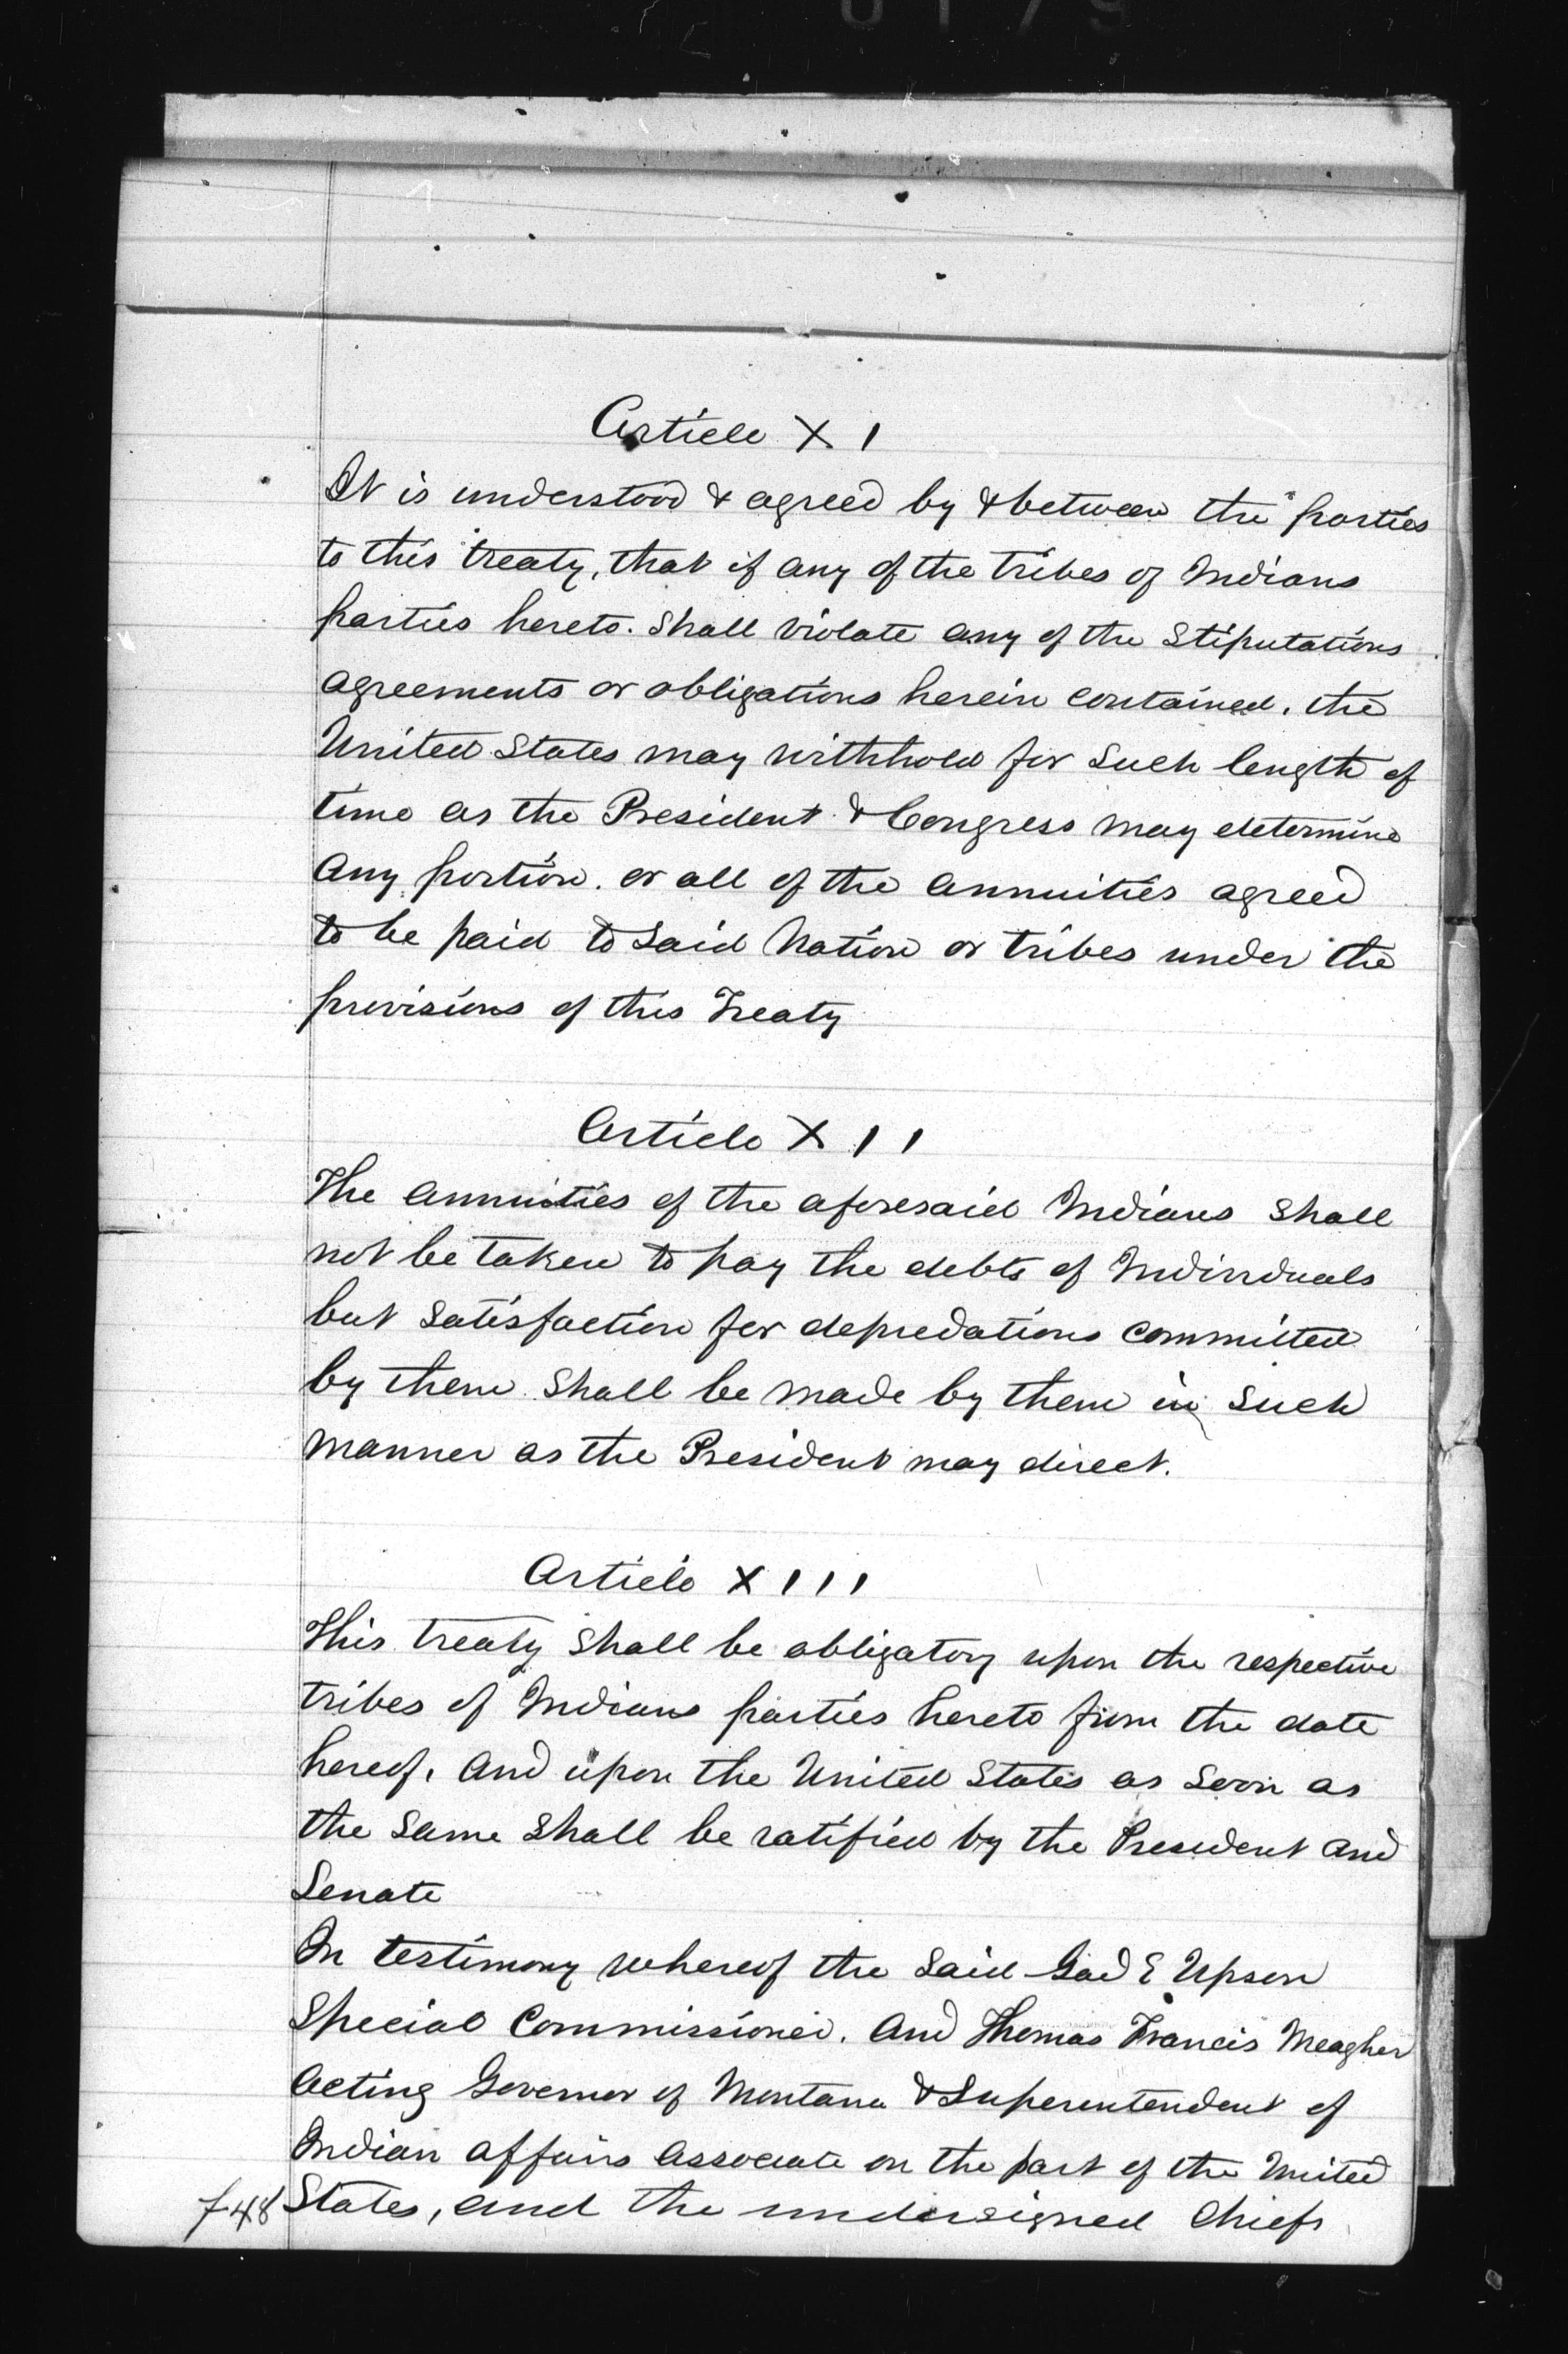 Article XI
It is understood & agreed by & between the parties
to this treaty, that if any of the tribes of Indians
parties hereto. Shall violate any of the Stipulations
agreements or obligations herein contained, the
United States may withhold for Such length of
time as the President & Congress may determine
any portion. or all of the annuities agreed
to be paid to Said Nation or tribes under the
provisions of this Treaty
Article XII
The annuities of the aforesaid Indians Shall
not be taken to pay the debts of Individuals
but Satisfaction for depredations committed
by them Shall be made by them in Such
manner as the President may direct.
Article XIII
This treaty Shall be obligatory upon the respective
tribes of Indians parties hereto from the date
hereof, and upon the United States as Soon as
the Same Shall be ratified by the President and
Senate
In testimony whereof the Said Gad E Upson
Special Commissioner. and Thomas Francis Meagher
Acting Governor of Montana & Superentendent of
Indian affairs associate on the part of the United
States, and the undersigned Chiefs